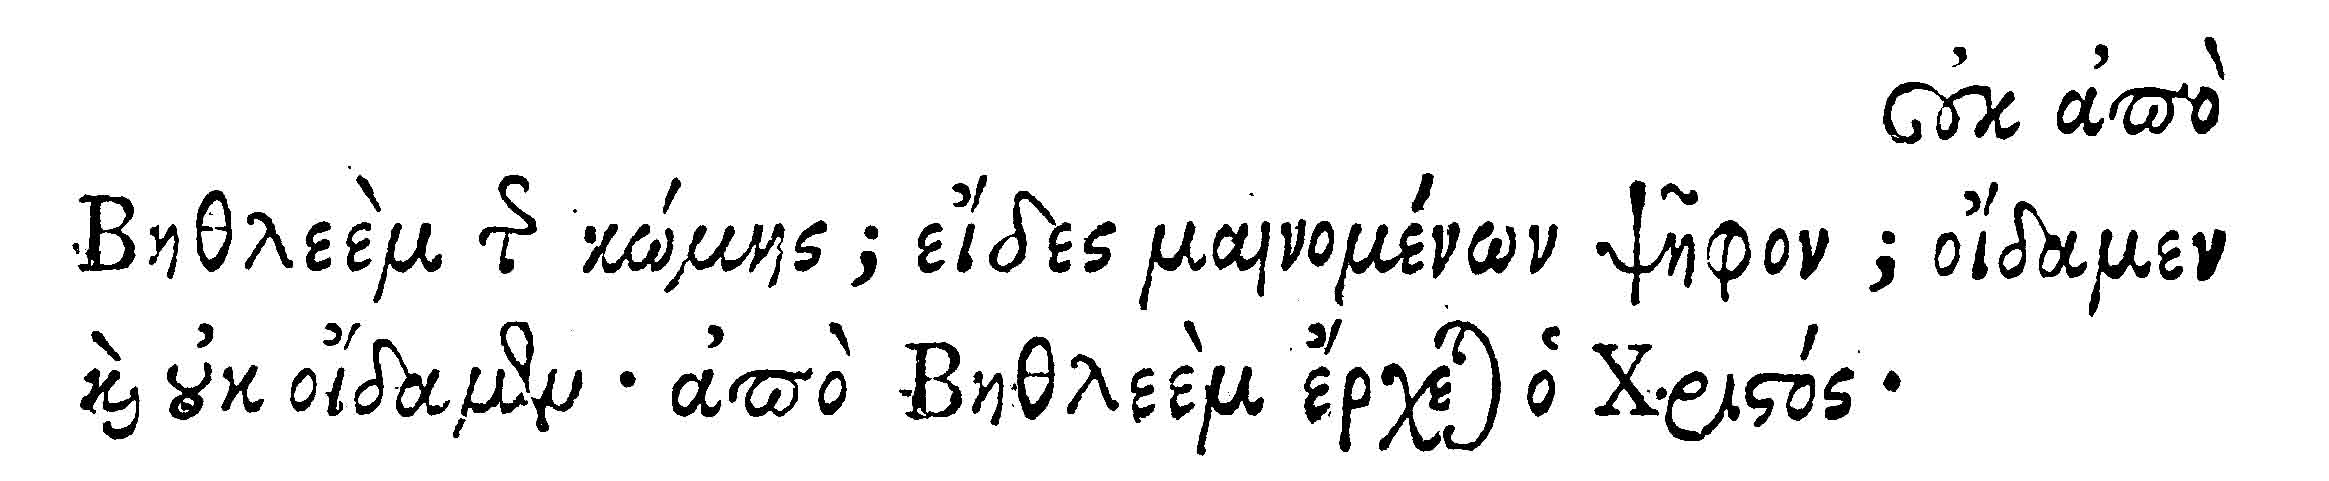 οὐκ ἀπὸ
Βηθλεὲμ τῆς κώμης; εἴδες μαινομένων ψῆφον; οἴδαμεν
καὶ οὐκ οἴδαμεν· ἀπὸ Βηθλεὲμ ἔρχεται ὁ Χριστός.